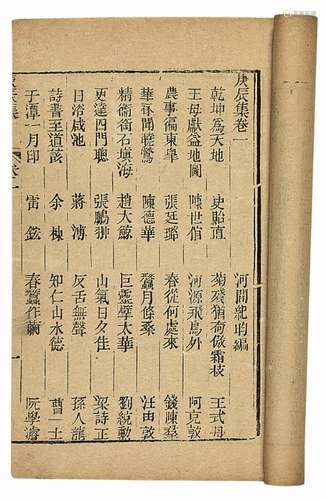 庚辰集卷一
河間紀昀編
乾坤為天地 史貽直 菊殘猶有傲霜枝 王式丹
王母獻益地圖 陳世倌 河源飛鳥外 阿克敦
農事徧東臯 張廷璐 春從何處來 錢陳羣
華林聞 鶯 陳德華 蠶月條桑 汪由敦
精衛銜石填海 趙大鯨 巨靈擘太華 劉統勳
更達四門聰 張鵬翀 山氣日夕佳 梁詩正
日浴咸池 蔣溥 反舌無聲 孫人龍
詩書至道該 余棟 知仁山水德 曹一士
于潭一月印 雷鋐 春蠶作繭 阮學濬